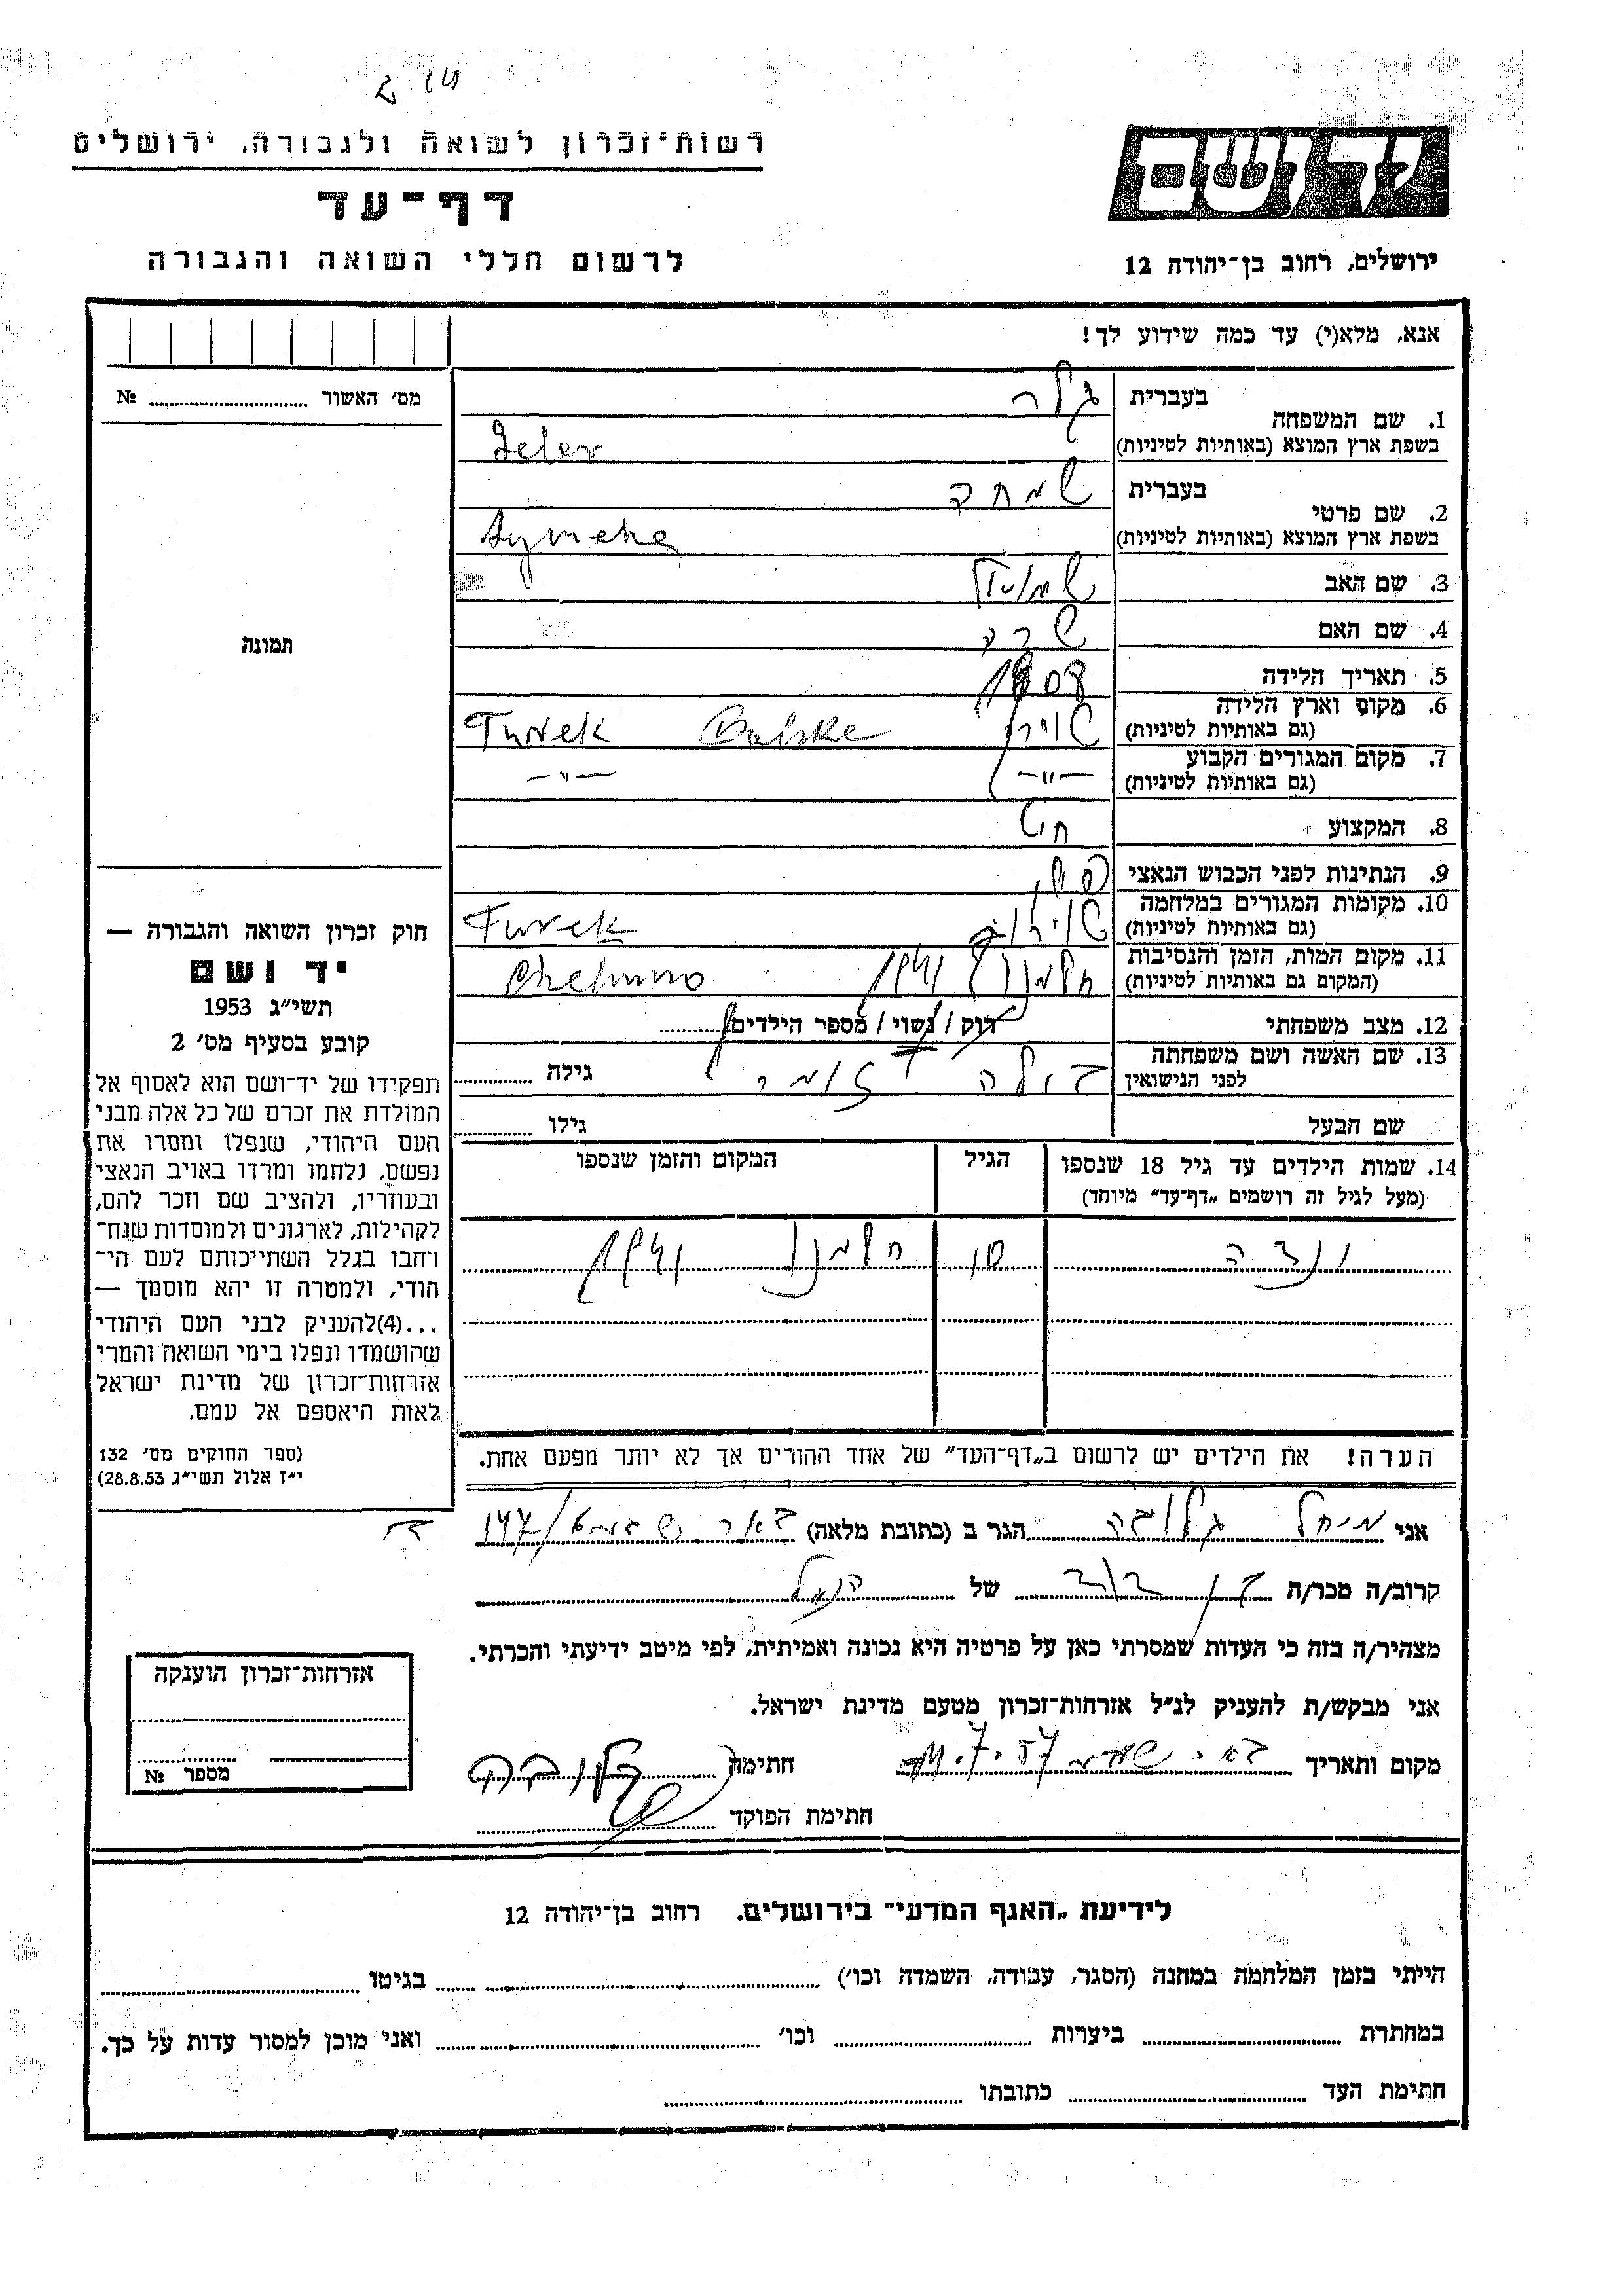 רשות־זכרון לשואה ולגבורה, ירושלים
דף־עד
לרשום חללי השואה והגבורה
יד ושם
ירושלים, רחוב בן־יהודה 12
אנא, מלא(י) עד כמה שידוע לך!
מס׳ האשור № 
תמונה
חוק זכרון השואה והגבורה —
יד ושם
תשי״ג 1953
קובע בסעיף מס׳ 2
תפקידו של יד־ושם הוא לאסוף אל
המולדת את זכרם של כל אלה מבני
העם היהודי, שנפלו ומסרו את
נפשם, נלחמו ומרדו באויב הנאצי
ובעוזריו, ולהציב שם וזכר להם,
לקהילות, לארגונים ולמוסדות שנח־
רחבו בגלל השתייכותם לעם הי־
הודי, ולמטרה זו יהא מוסמך —
...(4)להעניק לבני העם היהודי
שהושמדו ונפלו בימי השואה והמרי
אזרחות־זכרון של מדינת ישראל
לאות היאספם אל עמם.
(ספר החוקים מס׳ 132
י״ז אלול תשי״ג 28.8.53)
1. שם המשפחה
בעברית גלר
בשפת ארץ המוצא (באותיות לטיניות) Geler
2. שם פרטי
בעברית שמחה
בשפת ארץ המוצא (באותיות לטיניות) Symcha
3. שם האב שמואל
4. שם האם שרה
5. תאריך הלידה 1908
6. מקום וארץ הלידה
(גם באותיות לטיניות) Turek
7. מקום המגורים הקבוע
(גם באותיות לטיניות) —״— —״—
8. המקצוע חיט
9. הנתינות לפני הכבוש הנאצי
10. מקומות המגורים במלחמה
(גם באותיות לטיניות) Turek
11. מקום המות, הזמן והנסיבות
(המקום גם באותיות לטיניות) חלמנו 1941 Chelmno
12. מצב משפחתי רוק / נשוי / מספר הילדים
13. שם האשה ושם משפחתה
לפני הנישואין גילה
שם הבעל גילו
14. שמות הילדים עד גיל 18 שנספו הגיל המקום והזמן שנספו
(מעל לגיל זה רושמים „דף־עד״ מיוחד)
ונדה 10 חלמנו 1941
הערה! את הילדים יש לרשום ב„דף־העד״ של אחד ההורים אך לא יותר מפעם אחת.
אני מיחל גלובה הגר ב (כתובת מלאה) באר שבע
קרוב/ה מכר/ה בן דוד של הנ״ל
מצהיר/ה בזה כי העדות שמסרתי כאן על פרטיה היא נכונה ואמיתית, לפי מיטב ידיעתי והכרתי.
אני מבקש/ת להעניק לנ״ל אזרחות־זכרון מטעם מדינת ישראל.
מקום ותאריך חתימה גלובה
חתימת הפוקד
אזרחות־זכרון הוענקה
מספר №
לידיעת „האגף המדעי״ בירושלים. רחוב בן־יהודה 12
הייתי בזמן המלחמה במחנה (הסגר, עבודה, השמדה וכו׳) בגיטו
במחתרת ביערות וכו׳ ואני מוכן למסור עדות על כך.
חתימת העד כתובתו